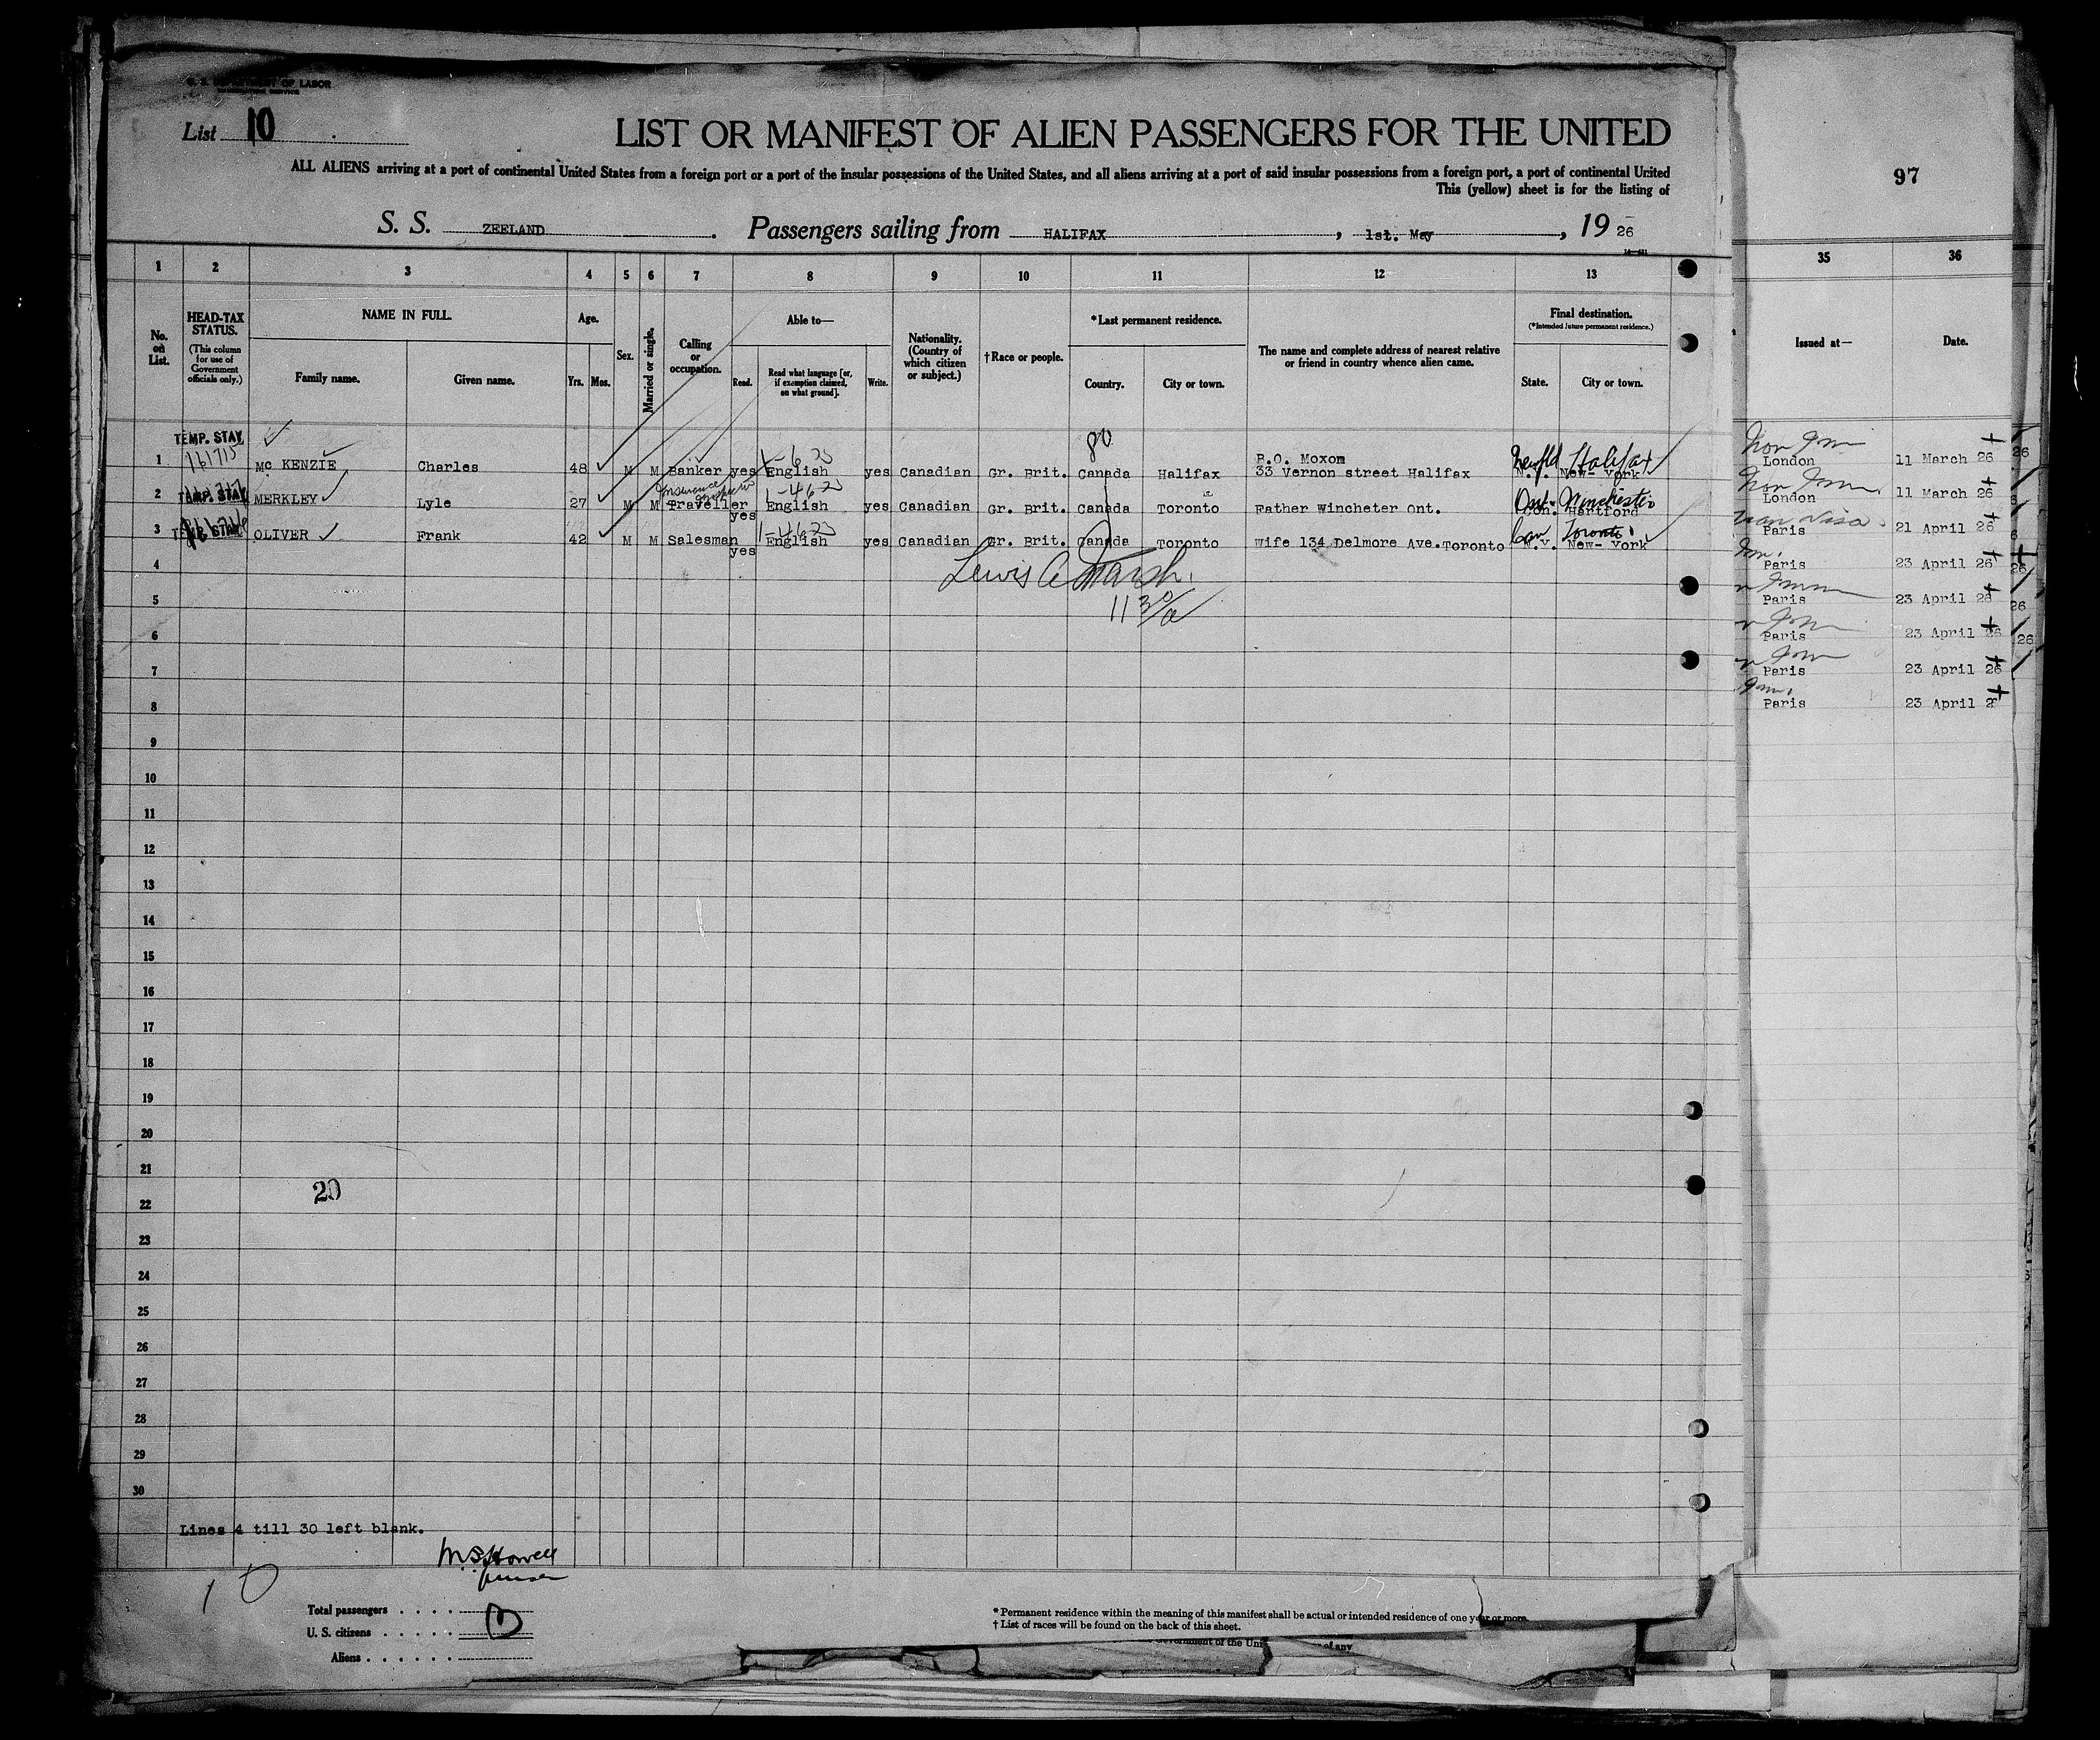 U. S. DEPARTMENT OF LABOR
IMMIGRATION SERVICE
List 10
LIST OR MANIFEST OF ALIEN PASSENGERS FOR THE UNITED
ALL ALIENS arriving at a port of continental United States from a foreign port or a port of the insular possessions of the United States, and all aliens arriving at a port of said insular possessions from a foreign port, a port of continental United
This (yellow) sheet is for the listing of
97
S. S. ZEELAND. Passengers sailing from HALIFAX, 1st. May, 19 26
1 2 3 4 5 6 7 8 9 10 11 12 13 35 36
No. on List.
HEAD-TAX STATUS.
(This column for use of Government officials only.)
NAME IN FULL.
Family name. Given name.
Age.
Yrs. Mos.
Sex.
Married or single.
Calling or occupation.
Able to—
Read. Read what language [or, if exemption claimed, on what ground]. Write.
Nationality. (Country of which citizen or subject.)
†Race or people.
*Last permanent residence.
Country. City or town.
The name and complete address of nearest relative or friend in country whence alien came.
Final destination.
(*Intended future permanent residence.)
State. City or town.
Issued at— Date.
TEMP. STAY 161715 80 1-6
B.O. Moxom Halifax
1 Mc KENZIE Charles 48 M M Banker yes English yes Canadian Gr. Brit. Canada Halifax 33 Vernon street Halifax N.Y. New-York
Insurance Inspector 1-4 Ont. Winchester
2 TEMP. STAY MERKLEY Lyle 27 M M Traveller yes English yes Canadian Gr. Brit. Canada Toronto Father Wincheter Ont. Con. Hartford
Can Toronto
3 OLIVER Frank 42 M M Salesman yes English yes Canadian Gr. Brit. Canada Toronto Wife 134 Delmore Ave. Toronto N.Y. New-York
Lewis A Marsh.
11 30/a
4
5
6
7
8
9
10
11
12
13
14
15
16
17
18
19
20
21
20
22
23
24
25
26
27
28
29
30
Lines 4 till 30 left blank.
M.S. Howell
purser
10
Total passengers
U. S. citizens
Aliens
* Permanent residence within the meaning of this manifest shall be actual or intended residence of one year or more.
† List of races will be found on the back of this sheet.
Non Imm
London 11 March 26
Non Imm.
London 11 March 26
Paris 21 April 26
Paris 23 April 26
Paris 23 April 26
Paris 23 April 26
Paris 23 April 26
Paris 23 April 2